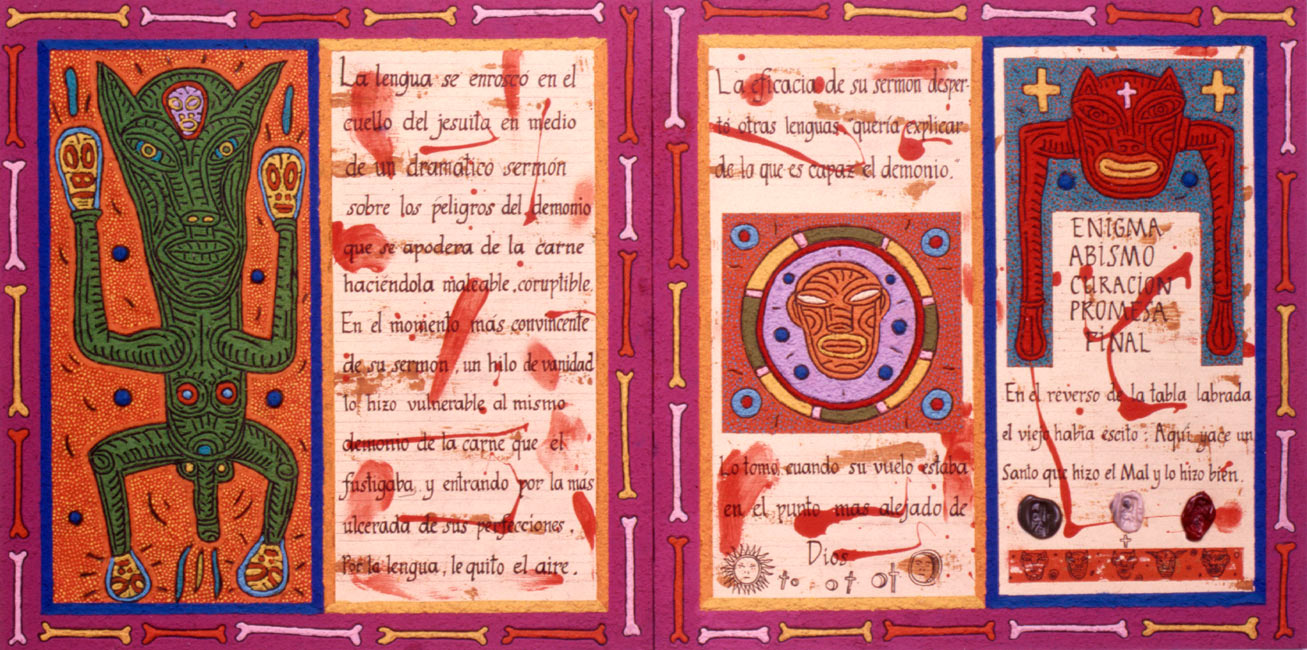 La lengua se enroscó en el
cuello del jesuita en medio
de un dramático sermón
sobre los peligros del demonio
que se apodera de la carne
haciéndola maleable, coruptible.
En el momento más convincente
de su sermón, un hilo de vanidad
lo hizo vulnerable al mismo
demonio de la carne que el
fustigaba y entrando por la más
ulcerada de sus perfecciones.
Por la lengua, le quito el aire.
La eficacia de su sermón desper-
tó otras lenguas, quería explicar
de lo que es capaz el demonio.
Lo tomo cuando su vuelo estaba
en el punto mas alejado de
Dios
ENIGMA
ABISMO
CURACION
PROMESA
FINAL
En el reverso de la tabla labrada
el viejo había escito: Aquí yace un
Santo que hizo el Mal y lo hizo bien.